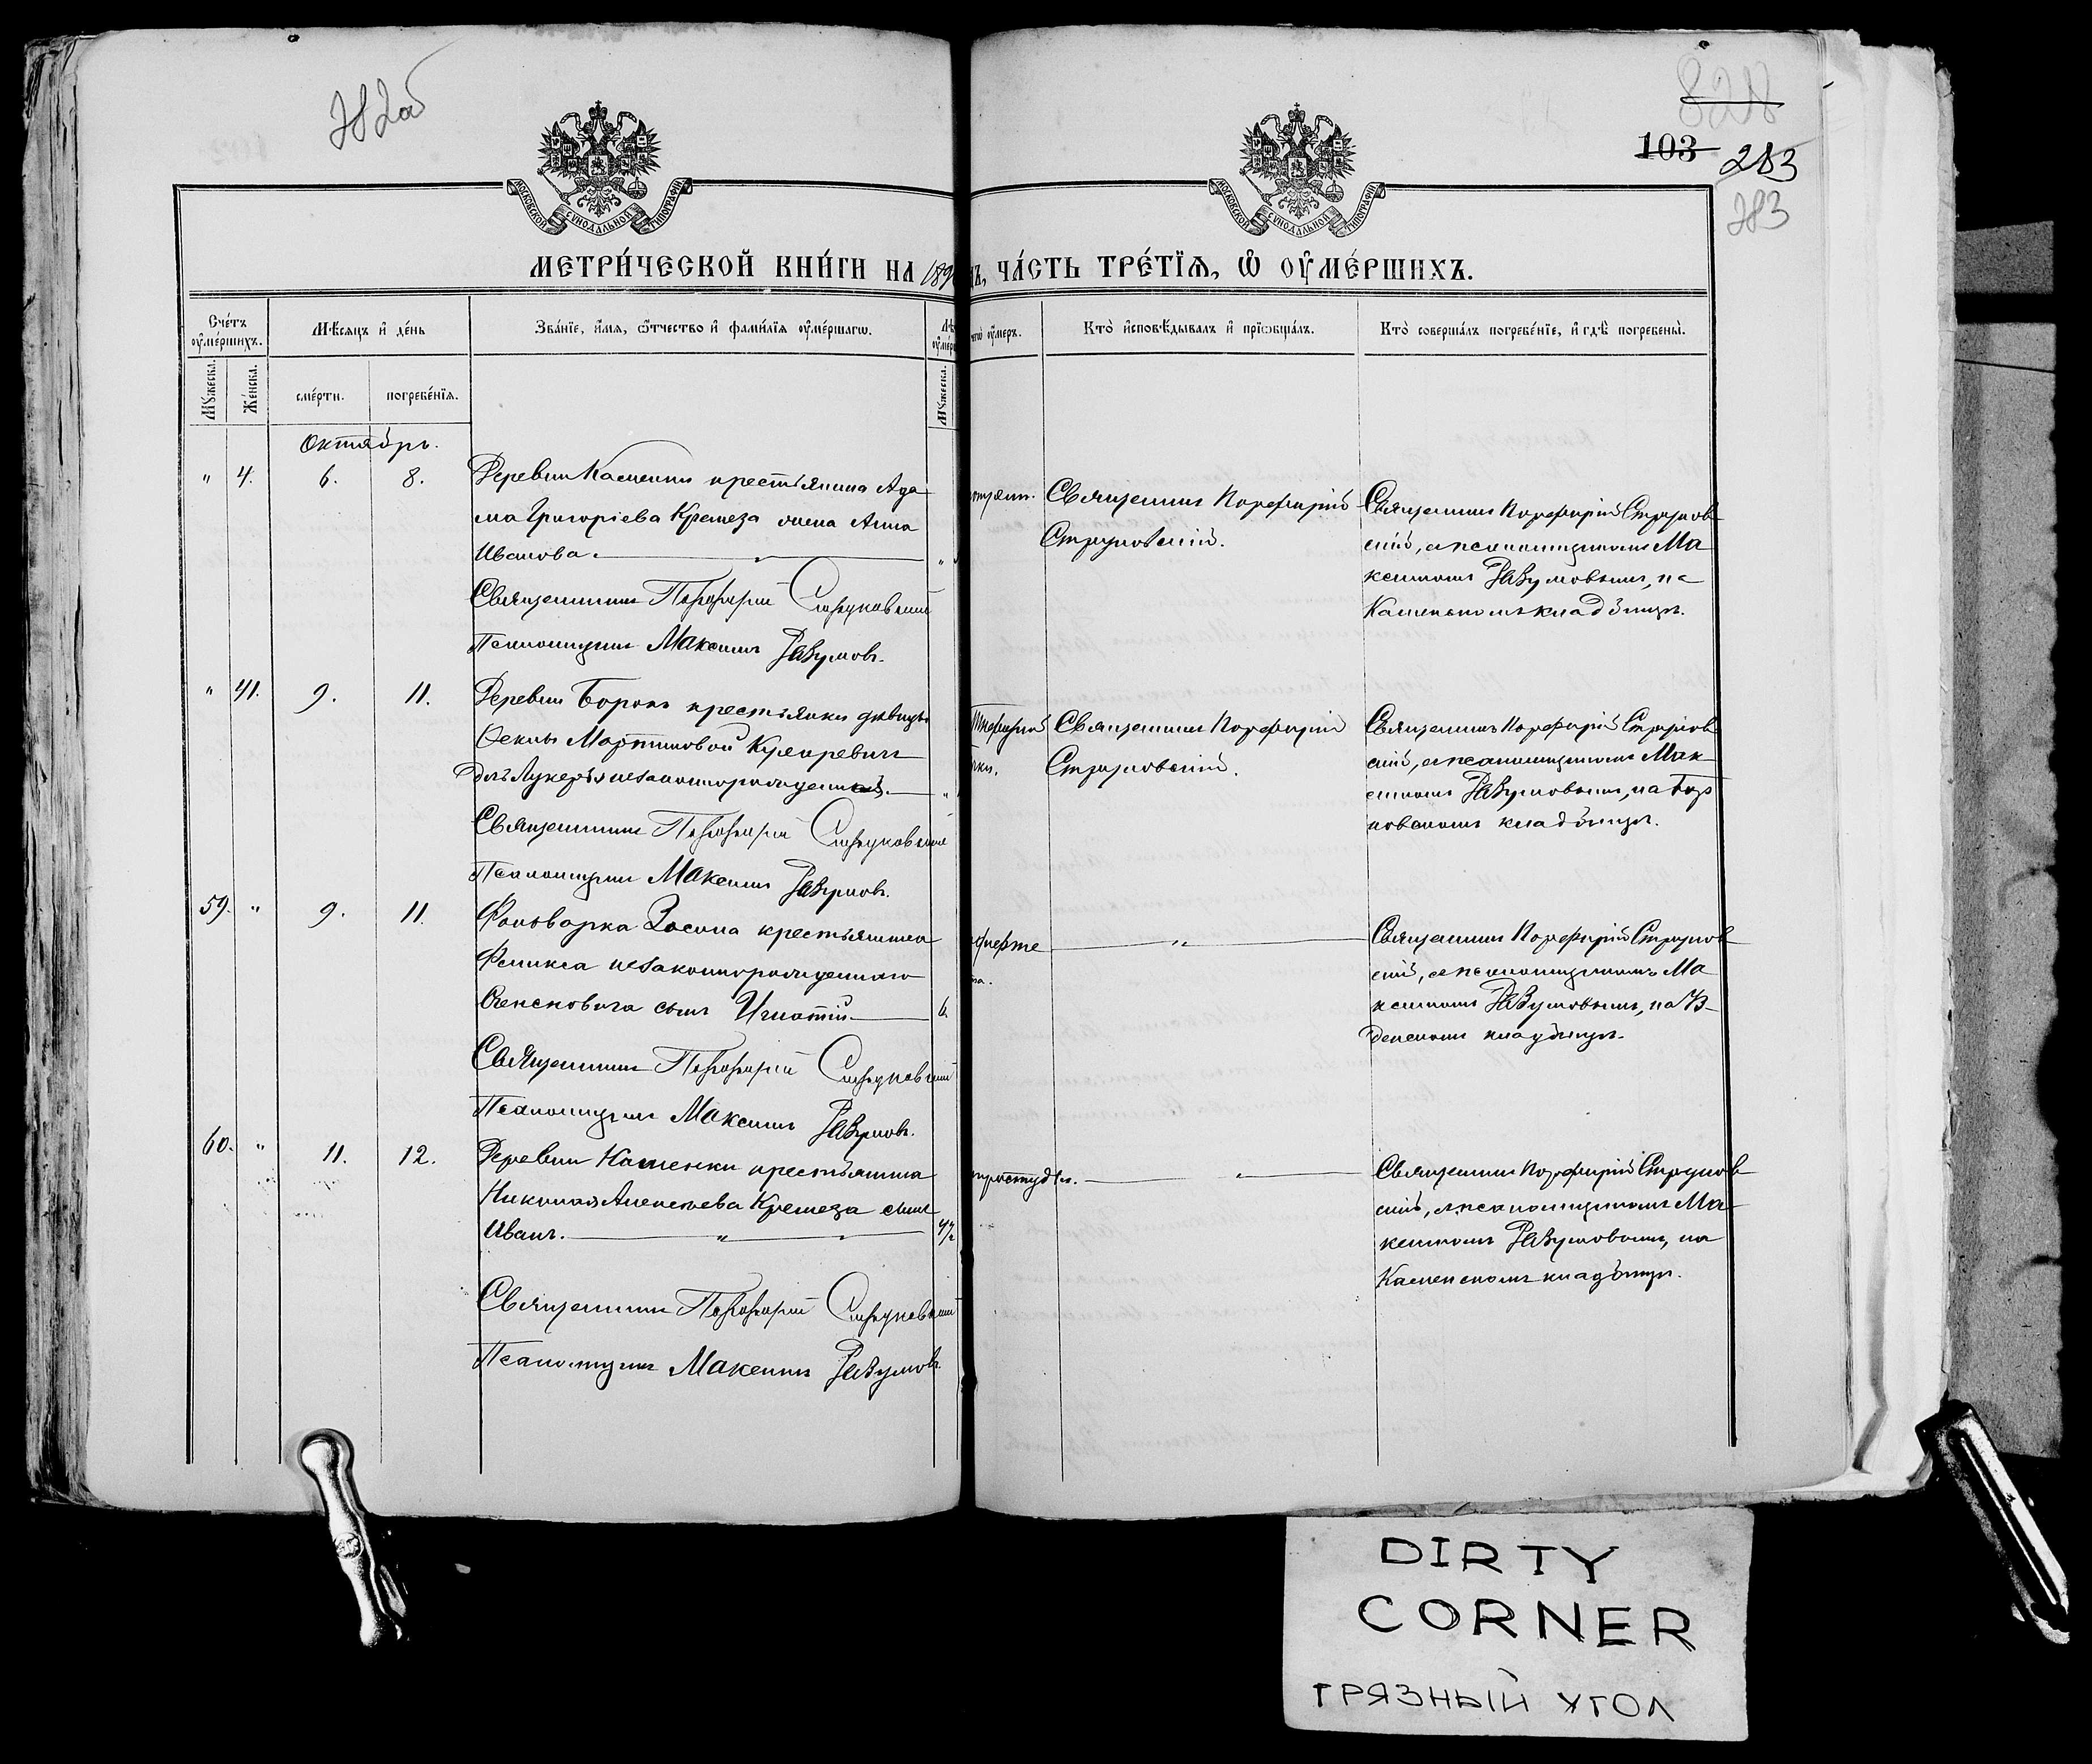 282об
828
103 283
283
МОСКОВСКОЙ СѴНОДАЛЬНОЙ ТИПОГРАФІИ
МОСКОВСКОЙ СѴНОДАЛЬНОЙ ТИПОГРАФІИ
МЕТРИ́ЧЕСКОЙ КНИ́ГИ НА 189
Ъ, ЧА́СТЬ ТРЕ́ТІѦ, Ѽ ОУ҆МЕ́РШИХЪ.
Счéтъ оу҆мéршихъ.
Мѣ́сяцъ и҆ дéнь
Звáнїе, и҆́мя, ѻ҆́тчество и҆ фамѝлїя оу҆мéршагѡ.
оу҆мéръ.
Ктò и҆сповѣ́дывалъ и҆ прїѡбщáлъ.
Ктò совершáлъ погребéнїе, и҆ гдѣ̀ погребены̀.
Мꙋ́жеска.
Жéнска.
смéрти.
погребéнїя.
Мꙋ́жеска.
Октябрь.
" 4. 6. 8. Деревни Каменки крестьянина Ада
ма Григоріева Кремеза жена Анна
Иванова. "
Священникъ Порфирій Струковскій
Псаломщикъ Максимъ Разумовъ.
Священникъ Порфирій
Струковскій.
Священникъ Порфирій Струков
скій, с псаломщикомъ Ма
ксимомъ Разумовымъ, на
Каменскомъ кладбищѣ.
" 41. 9. 11. Деревни Борокъ крестьянки дѣвицы
Феклы Мартиновой
дочь Лукерья незаконнорожденная.
Священникъ Порфирій Струковскій
Псаломщикъ Максимъ Разумовъ.
Священникъ Порфирій
Струковскій.
Священникъ Порфирій Струков
скій, с псаломщикомъ Мак
симомъ Разумовымъ, на Бор
ковскомъ кладбищѣ.
59. " 9. 11. Фольварка Засина крестьянина
Феликса незаконнорожденнаго
сынъ Игнатій 6.
Священникъ Порфирій Струковскій
Псаломщикъ Максимъ Разумовъ.
"
Священникъ Порфирій Струков
скій, с псаломщикомъ Ма
ксимомъ Разумовымъ, на Уз
денскомъ кладбищѣ.
60. " 11. 12. Деревни Каменки крестьянина
Николая Алексѣева Кремеза сынъ
Иванъ. "
Священникъ Порфирій Струковскій
Псаломщикъ Максимъ Разумовъ.
простуды. "
Священникъ Порфирій Струков
скій, с псаломщикомъ Ма
ксимомъ Разумовымъ, на
Каменскомъ кладбищѣ.
DIRTY
CORNER
ГРЯЗНЫЙ УГОЛ